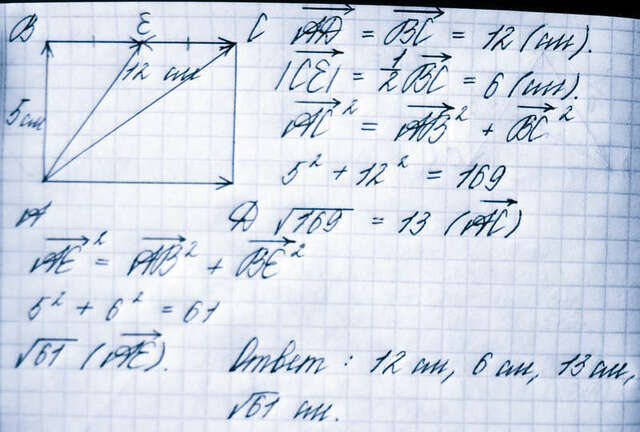 B E C
12 см
5 см
A Д
A͞D͞ = B͞C͞ = 12 (см).
|C͞E͞| = 1/2 B͞C͞ = 6 (см).
A͞C͞² = A͞B͞² + B͞C͞²
5² + 12² = 169
√169 = 13 (A͞C͞)
A͞E͞² = A͞B͞² + B͞E͞²
5² + 6² = 61
√61 (A͞E͞).
Ответ : 12 см, 6 см, 13 см,
√61 см.